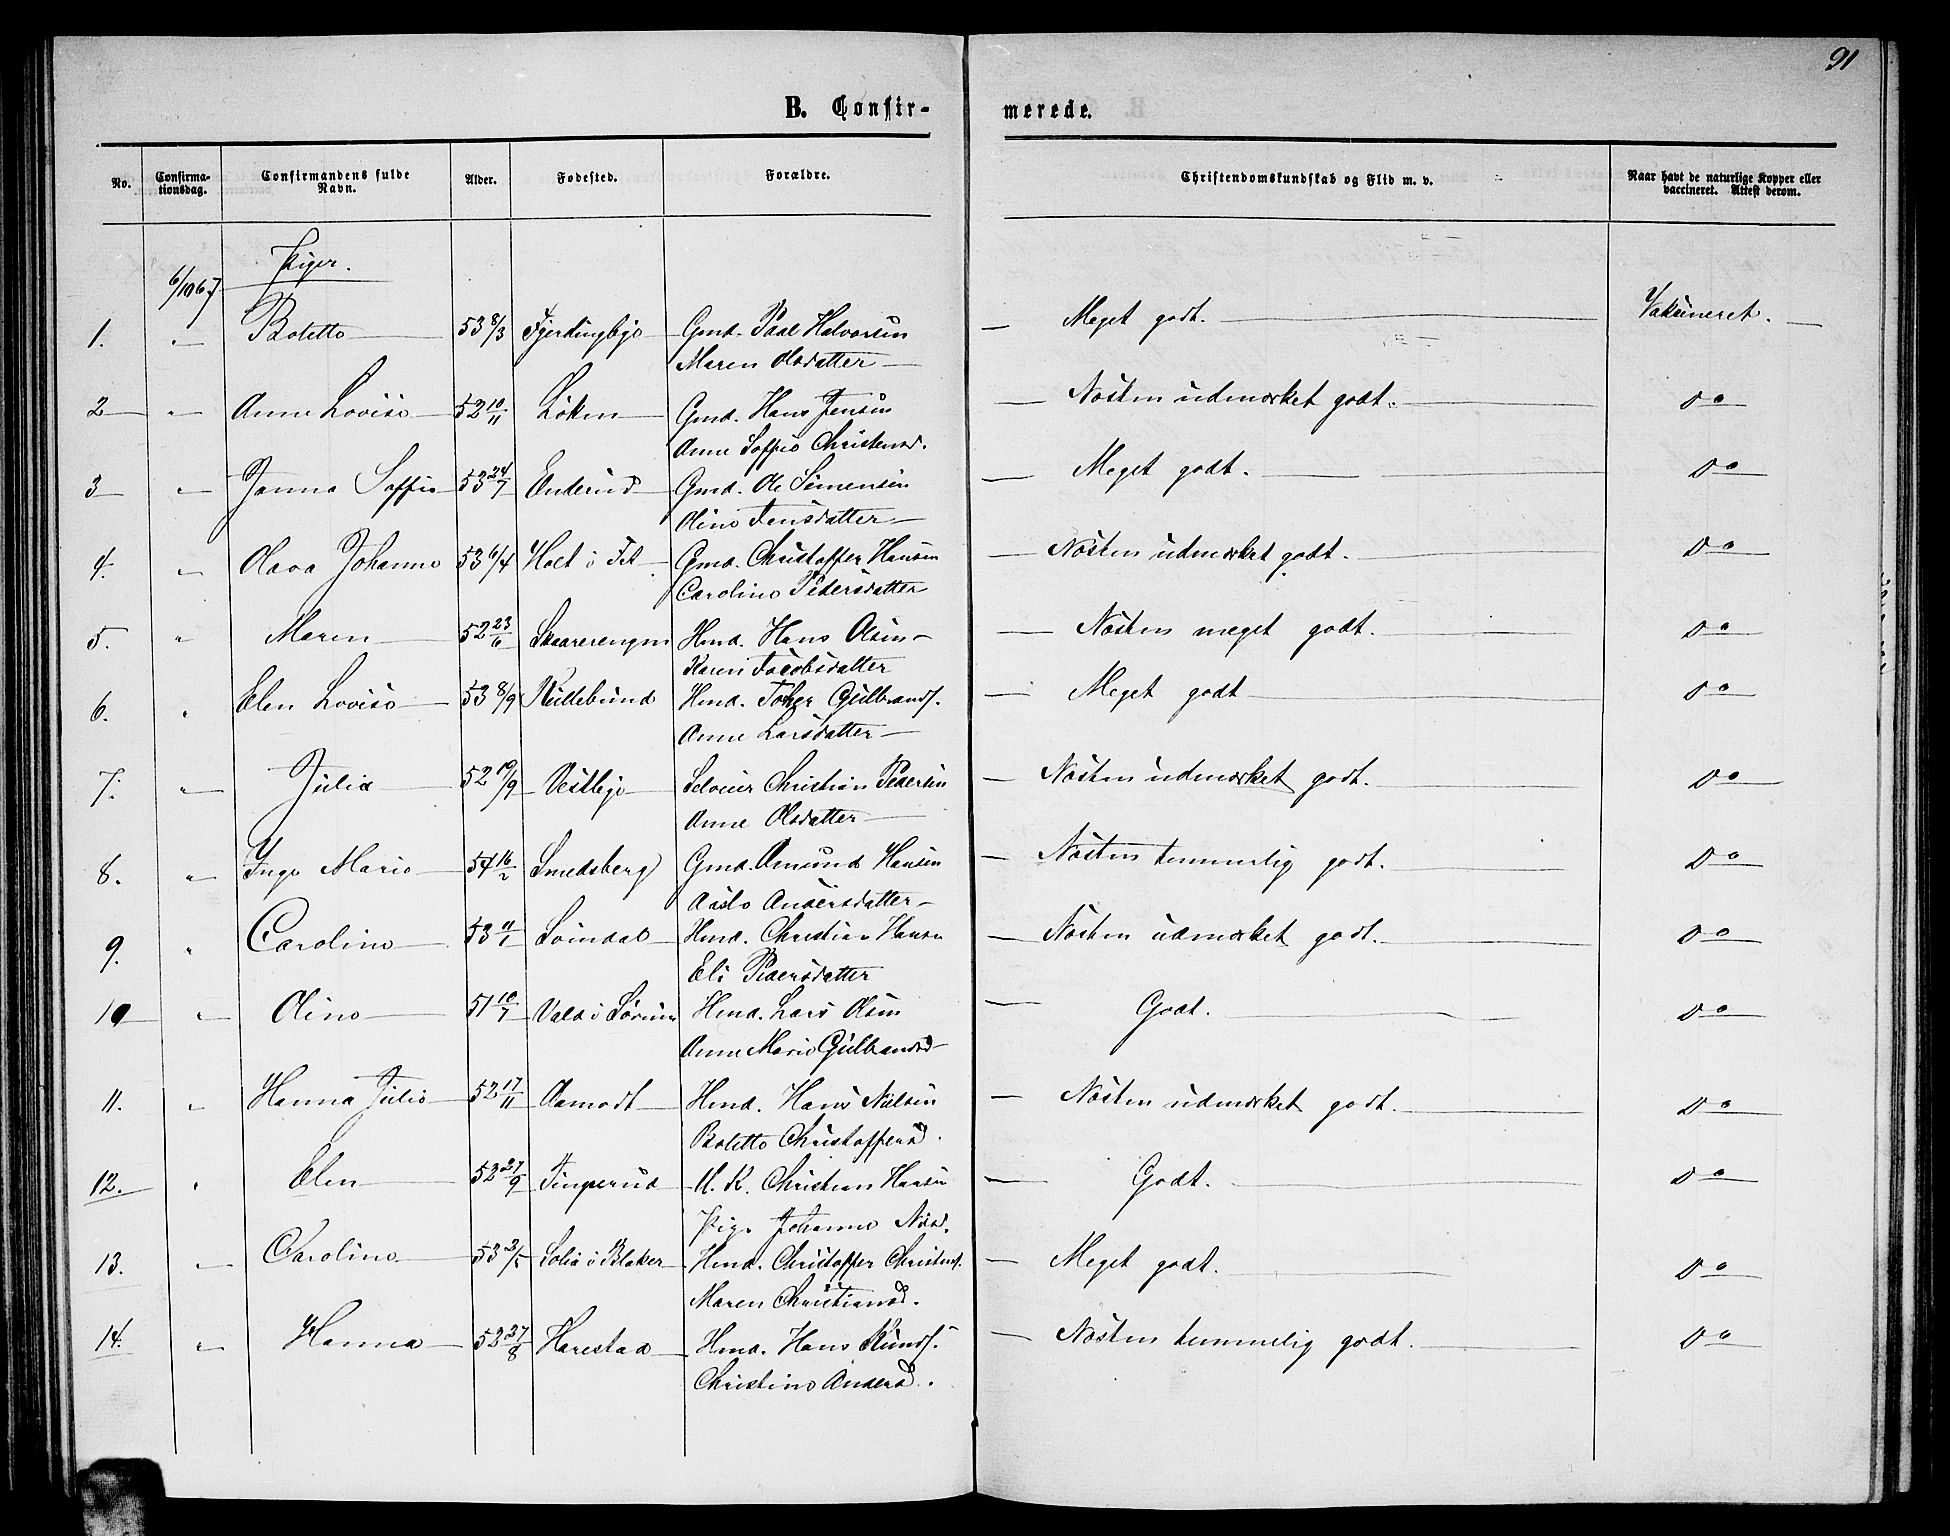 91
B. Confirmerede.
No. Confirmationsdag. Confirmandens fulde Navn. Alder. Fødested. Forældre. Christendomskundskab og Flid m. v. Naar havt de naturlige Kopper eller vaccineret. Attest derom.
6/10 67 Piger.
1. " Bolette 53 8/3 Fjerdingbye Gmd. Paal Halvorsen Meget godt. Vakcineret.
Maren Olsdatter
2 " Anne Lovise 52 10/11 Løken Gmd. Hans Jensen Næsten udmærket godt. Do
Anne Soffie Christensd.
3 " Janna Soffie 53 24/7 Enderud Gmd. Ole Simensen Meget godt. Do
Oline Jensdatter
4. " Olava Johanne 53 6/4 Holt i Fet Gmd. Christoffer Hansen Næsten udmærket godt. Do
Caroline Pedersdatter
5. " Maren 52 23/6 Skaarerengen Hmd. Hans Olsen Næsten meget godt. Do
Karen Jacobsdatter
6. " Elen Lovise 53 8/9 Hmd. Gulbrands. Meget godt Do
Anne Larsdatter
7. " Julia 52 19/9 Vestbye Selveier Christian Pedersen Næsten udmærket godt. Do
Anne Olsdatter
8. " Inge Marie 54 16/2 Smedsberg Gmd. Amund Hansen Næsten temmelig godt. Do
Aaste Andersdatter
9. " Caroline 53 11/1 Hmd. Christian Hansen Næsten udmærket godt. Do
Eli Pedersdatter
10 " Oline 51 10/7 Vald i Sørum Hmd. Lars Olsen Godt. Do
Anne Marie Gulbrandsd
11. " Hanna Julie 52 17/11 Aamodt Hmd. Hans Nielsen Næsten udmærket godt. Do
Bolette Christoffersd.
12. " Elen 52 27/9 Tingerud U. K. Christian Hansen Godt. Do
Pige Johanne Nilsd.
13. " Caroline 53 2/5 i Blaker Hmd. Christoffer Christens. Meget godt. Do
Maren Christiansd.
14. " Hanna 52 27/8 Harestad Hmd. Hans Knuds. Næsten temmelig godt. Do
Christine Andersd.